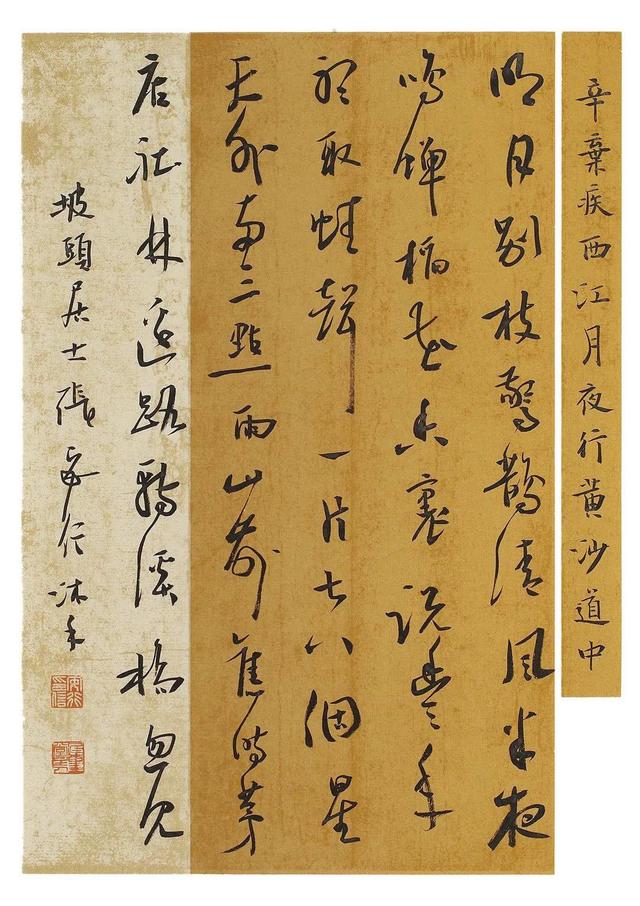 辛棄疾西江月夜行黃沙道中
明月別枝驚鵲清風半夜
鳴蟬稻花香裏說豐年
聽取蛙聲一片七八個星
天外兩三點雨山前舊時茅
店社林邊路轉溪橋忽見
坡頭居士張行沐手